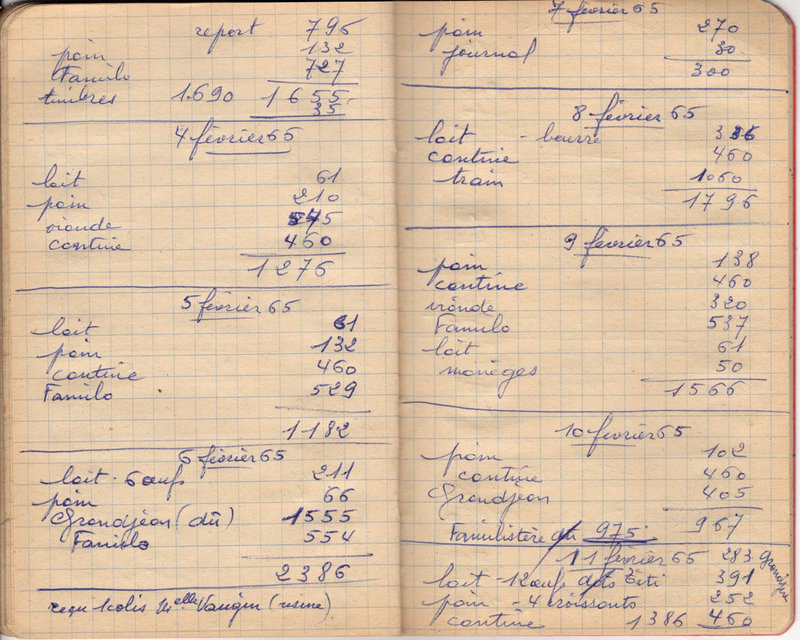 report 796
pain 132
Familo 727
timbres 1.690 1655
35
4 février 65
lait 61
pain 210
viande 545
cantine 460
1276
5 février 65
lait 61
pain 132
cantine 460
Familo 529
1182
6 février 65
lait - 6 œufs 211
pain 66
Grandjean (dû) 1555
Familo 554
2386
reçu 1 colis Melle Vaugin (usine)
7 février 65
pain 270
journal 30
300
8 février 65
lait - beurre 336
cantine 460
train 1060
1796
9 février 65
pain 138
cantine 460
viande 320
Familo 537
lait 61
manèges 50
1566
10 février 65
pain 102
cantine 460
Grandjean 405
967
Familistère du 975
11 février 65 283 Grandjean
lait - 12 œufs Titi 391
pain - 4 croissants 252
cantine 1386 460